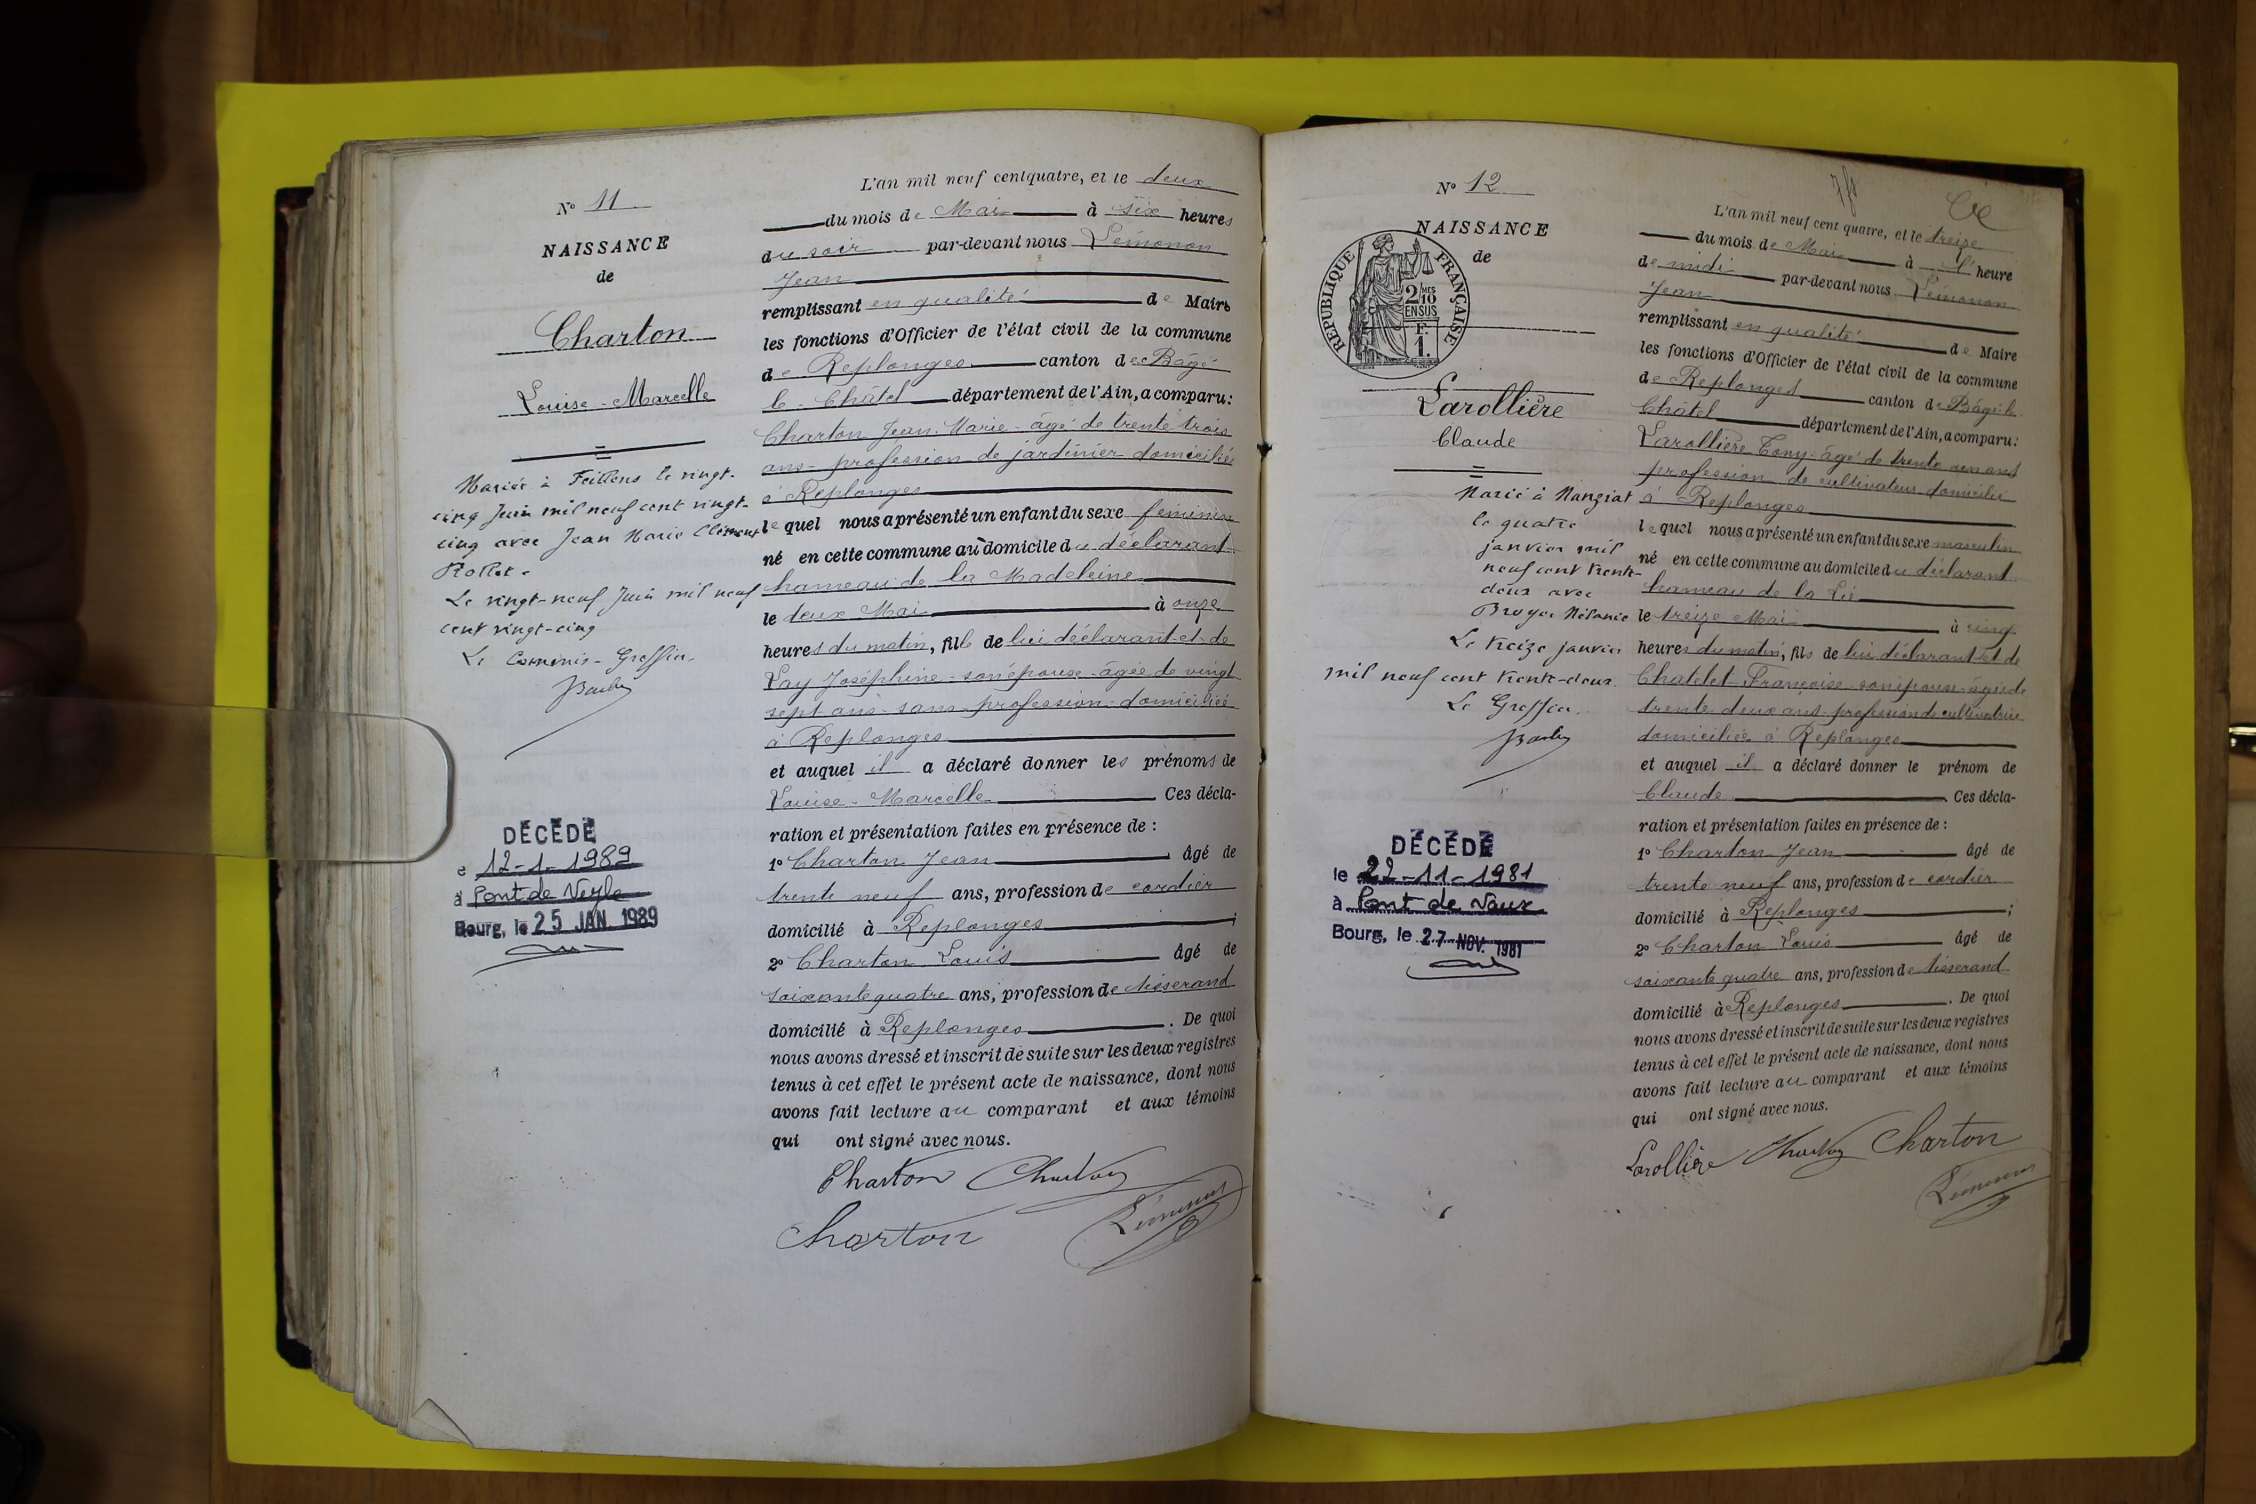 N° 11
NAISSANCE
de
Charton
Louise-Marcelle
Mariée à Feillens le vingt-
cinq Juin mil neuf cent vingt-
cinq avec Jean Marie Clément
Rollet.
Le vingt-neuf Juin mil neuf
cent vingt-cinq
Le Commis-Greffier
DÉCÉDÉ
e 12-1-1989
à Pont de Veyle
Bourg, le 25 JAN. 1989
L'an mil neuf cent quatre, et le deux
du mois de Mai à six heures
du soir par-devant nous Lémonon
Jean
remplissant en qualité de Maire
les fonctions d'Officier de l'état civil de la commune
de Replonges canton de Bâgé
le Châtel département de l'Ain, a comparu:
Charton Jean Marie âgé de trente trois
ans profession de jardinier domicilié
à Replonges
le quel nous a présenté un enfant du sexe féminin
né en cette commune au domicile du déclarant
hameau de la Madeleine
le deux Mai à onze
heures du matin, fille de lui déclarant et de
Lay Joséphine son épouse âgée de vingt
sept ans sans profession domiciliée
à Replonges
et auquel il a déclaré donner les prénoms de
Louise-Marcelle Ces décla-
ration et présentation faites en présence de :
1° Charton Jean âgé de
trente neuf ans, profession de cordier
domicilié à Replonges ;
2° Charton Louis âgé de
soixante quatre ans, profession de tisserand
domicilié à Replonges . De quoi
nous avons dressé et inscrit de suite sur les deux registres
tenus à cet effet le présent acte de naissance, dont nous
avons fait lecture au comparant et aux témoins
qui ont signé avec nous.
Charton Charton
Charton Lémonon
N° 12
NAISSANCE
de
RÉPUBLIQUE FRANÇAISE
2/10 MES
EN SUS
F.
1.
Larollière
Claude
Marié à Manziat
le quatre
janvier mil
neuf cent trente-
deux avec
Broyer Mélanie
Le treize janvier
mil neuf cent trente-deux
Le Greffier
DÉCÉDÉ
le 22-11-1981
à Pont de Vaux
Bourg, le 27 NOV. 1981
L'an mil neuf cent quatre, et le treize
du mois de Mai à l' heure
de midi par-devant nous Lémonon
Jean
remplissant en qualité de Maire
les fonctions d'Officier de l'état civil de la commune
de Replonges canton de Bâgé le
Châtel département de l'Ain, a comparu:
Larollière Tony âgé de trente ans
profession de cultivateur domicilié
à Replonges
le quel nous a présenté un enfant du sexe masculin
né en cette commune au domicile du déclarant
hameau de la
le treize Mai à cinq
heures du matin, fils de lui déclarant et de
Chatelet Françoise son épouse âgée de
trente deux ans profession de cultivatrice
domiciliée à Replonges
et auquel il a déclaré donner le prénom de
Claude . Ces décla-
ration et présentation faites en présence de :
1° Charton Jean âgé de
trente neuf ans, profession de cordier
domicilié à Replonges ;
2° Charton Louis âgé de
soixante quatre ans, profession de tisserand
domicilié à Replonges . De quoi
nous avons dressé et inscrit de suite sur les deux registres
tenus à cet effet le présent acte de naissance, dont nous
avons fait lecture au comparant et aux témoins
qui ont signé avec nous.
Larollière Charton Charton
Lémonon